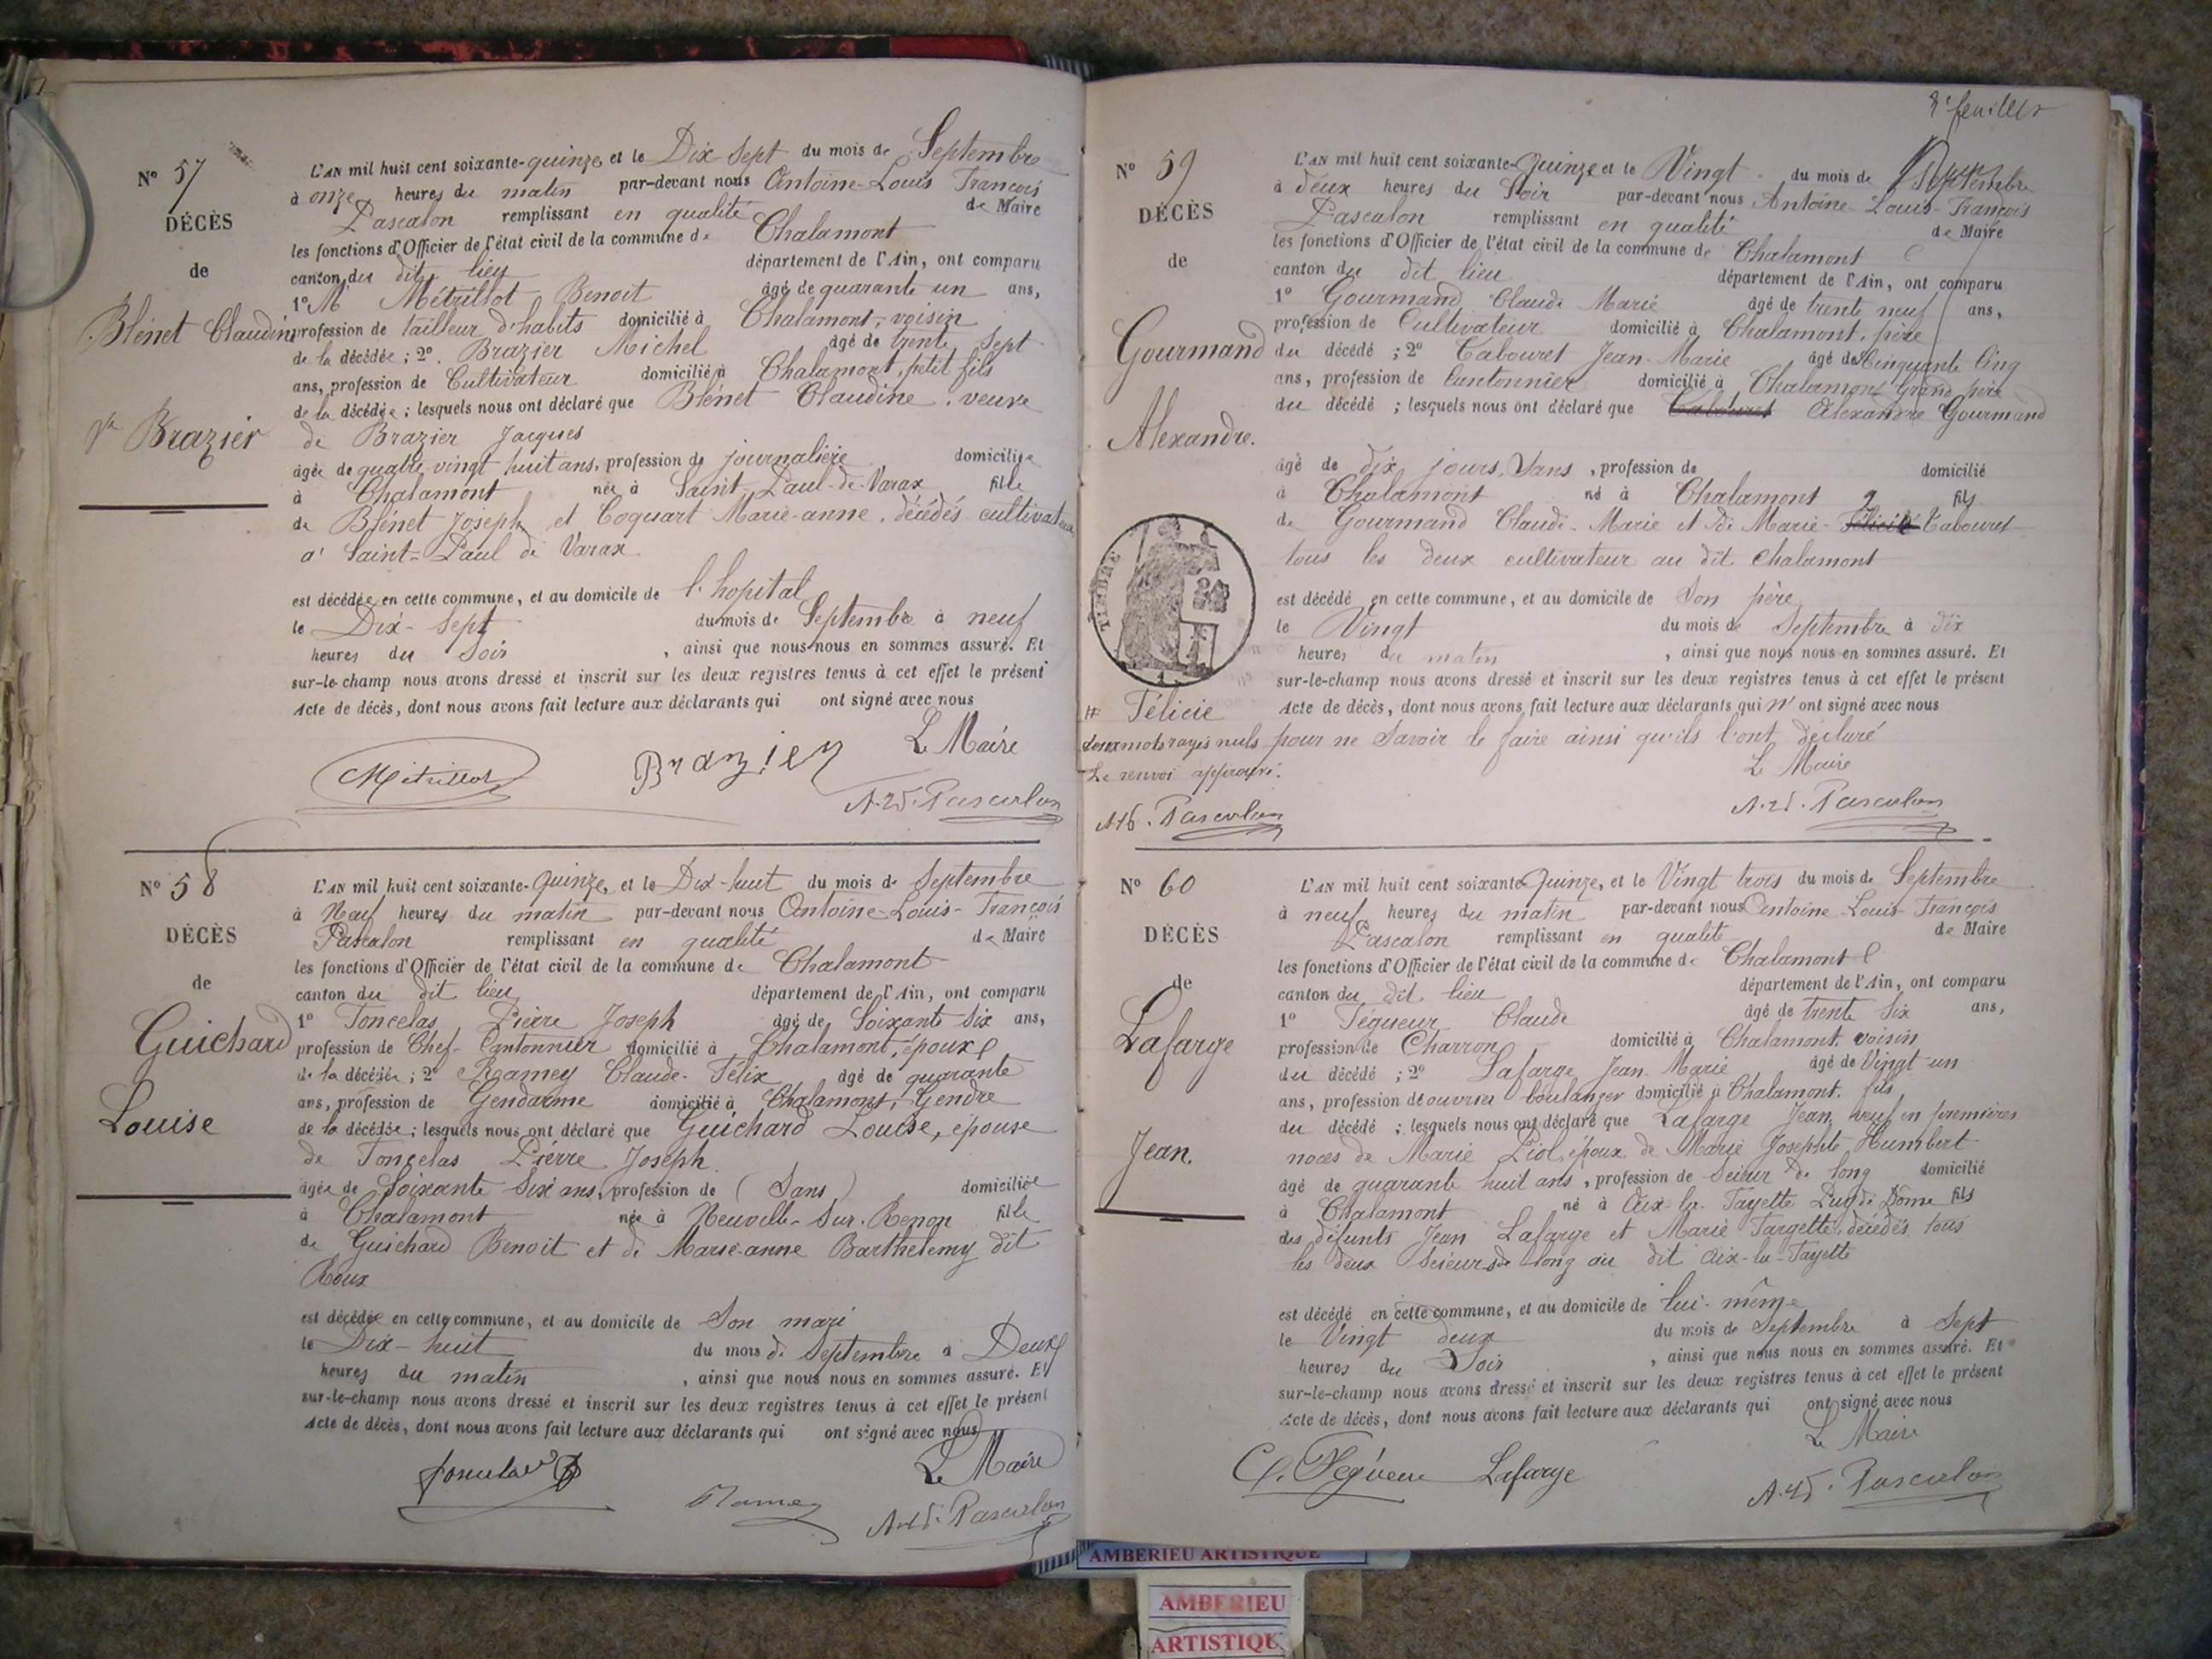 N° 57
DÉCÈS
de
Blénet Claudine
Ve Brazier
L'AN mil huit cent soixante-quinze et le Dix Sept du mois de Septembre
à onze heures du matin par-devant nous Antoine-Louis François
Pascalon remplissant en qualité de Maire
les fonctions d'Officier de l'état civil de la commune de Chalamont
canton du dit lieu département de l'Ain, ont comparu
1° M Métrillot Benoit âgé de quarante un ans,
profession de tailleur d'habits domicilié à Chalamont, voisin
de la décédée ; 2°. Brazier Michel âgé de trente Sept
ans, profession de Cultivateur domicilié à Chalamont, petit fils
de la décédée ; lesquels nous ont déclaré que Blénet Claudine, veuve
de Brazier Jacques
âgée de quatre-vingt huit ans, profession de journalière domiciliée
à Chalamont née à Saint-Paul-de-Varax fille
de Blénet Joseph et Coquart Marie-anne, décédés cultivateurs
à Saint-Paul de Varax
est décédée en cette commune, et au domicile de l'hopital
le Dix-Sept du mois de Septembre à neuf
heures du Soir, ainsi que nous nous en sommes assuré. Et
sur-le-champ nous avons dressé et inscrit sur les deux registres tenus à cet effet le présent
Acte de décès, dont nous avons fait lecture aux déclarants qui ont signé avec nous
Le Maire
Métrillot Brazier
Pascalon
N° 58
DÉCÈS
de
Guichard
Louise
L'AN mil huit cent soixante-Quinze, et le Dix-huit du mois de Septembre
à Neuf heures du matin par-devant nous Antoine-Louis-François
Pascalon remplissant en qualité de Maire
les fonctions d'Officier de l'état civil de la commune de Chalamont
canton du dit lieu département de l'Ain, ont comparu
1° Foncelas Pierre Joseph âgé de Soixante Six ans,
profession de Chef-Cantonnier domicilié à Chalamont, époux
de la décédée ; 2° Ramey Claude-Félix âgé de quarante
ans, profession de Gendarme domicilié à Chalamont, Gendre
de la décédée ; lesquels nous ont déclaré que Guichard Louise, épouse
de Foncelas Pierre Joseph
âgée de Soixante Six ans, profession de (Sans) domiciliée
à Chalamont née à Neuville-Sur-Renon fille
de Guichard Benoit et de Marie-anne Barthelemy dit
Roux
est décédée en cette commune, et au domicile de Son mari
le Dix-huit du mois de Septembre à Deux
heures du matin, ainsi que nous nous en sommes assuré. Et
sur-le-champ nous avons dressé et inscrit sur les deux registres tenus à cet effet le présent
Acte de décès, dont nous avons fait lecture aux déclarants qui ont signé avec nous
Le Maire
Ramey Pascalon
2e feuillet
N° 59
DÉCÈS
de
Gourmand
Alexandre.
L'AN mil huit cent soixante-Quinze et le Vingt du mois de Septembre
à deux heures du Soir par-devant nous Antoine-Louis-François
Pascalon remplissant en qualité de Maire
les fonctions d'Officier de l'état civil de la commune de Chalamont
canton du dit lieu département de l'Ain, ont comparu
1° Gourmand Claude Marie âgé de trente neuf ans,
profession de Cultivateur domicilié à Chalamont, père
du décédé ; 2° Tabouret Jean-Marie âgé de Cinquante Cinq
ans, profession de Cantonnier domicilié à Chalamont Grand père
du décédé ; lesquels nous ont déclaré que Tabouret Alexandre Gourmand
âgé de dix jours, Sans, profession de domicilié
à Chalamont né à Chalamont fils
de Gourmand Claude-Marie et de Marie-Félicité Tabouret
tous les deux cultivateur au dit Chalamont
est décédé en cette commune, et au domicile de Son père
le Vingt du mois de Septembre à dix
heures du matin, ainsi que nous nous en sommes assuré. Et
sur-le-champ nous avons dressé et inscrit sur les deux registres tenus à cet effet le présent
Acte de décès, dont nous avons fait lecture aux déclarants qui n'ont signé avec nous
pour ne Savoir le faire ainsi qu'ils l'ont déclaré
Le Maire
Pascalon
TIMBRE
# Félicie
deux mots rayés nuls
Le renvoi approuvé.
Pascalon
N° 60
DÉCÈS
de
Lafarge
Jean.
L'AN mil huit cent soixante Quinze, et le Vingt trois du mois de Septembre
à neuf heures du matin par-devant nous Antoine-Louis-François
Pascalon remplissant en qualité de Maire
les fonctions d'Officier de l'état civil de la commune de Chalamont
canton du dit lieu département de l'Ain, ont comparu
1° Fégueur Claude âgé de trente Six ans,
profession de Charron domicilié à Chalamont, voisin
du décédé ; 2° Lafarge Jean-Marie âgé de Vingt un
ans, profession de ouvrier boulanger domicilié à Chalamont, fils
du décédé ; lesquels nous ont déclaré que Lafarge Jean, veuf en premières
noces de Marie Liol, époux de Marie Josephte Humbert
âgé de quarante huit ans, profession de Scieur de long domicilié
à Chalamont né à Aix-la-Fayette Puy-de-Dôme fils
des défunts Jean Lafarge et Marie Fargette, décédés tous
les deux Scieurs de long au dit Aix-la-Fayette
est décédé en cette commune, et au domicile de lui-même
le Vingt deux du mois de Septembre à Sept
heures du Soir, ainsi que nous nous en sommes assuré. Et
sur-le-champ nous avons dressé et inscrit sur les deux registres tenus à cet effet le présent
Acte de décès, dont nous avons fait lecture aux déclarants qui ont signé avec nous
Le Maire
Cl. Fégueur Lafarge
Pascalon
AMBERIEU ARTISTIQUE
AMBERIEU
ARTISTIQU